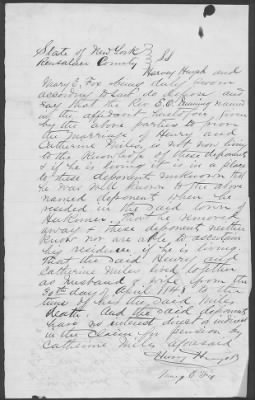 State of New York } SS
Rensalaer County }
Harvey Hugh and
Mary E. Fox being duly sworn
according to law do depose and
say that the Rev E.C. named
in the affidavit heretofore given
by the above parties to prove
the marriage of Henry and
Catherine Miles, is not now living
to the knowledge of these deponents
& if he is living it is in a place
to these deponents unknown that
he was well known to the above
named deponents when he
resided in said town of
Herkimer. That he removed
away & these deponents neither
know nor are able to ascertain
his residence if he is living.
That the said Henry and
Catherine Miles lived together
as husband & wife from the
30th day of April 1848 to the
time of his the said Miles
death. And the said deponents
have no interest direct or indirect
in the claim for pension by
Catherine Miles aforesaid
Mary E Fox